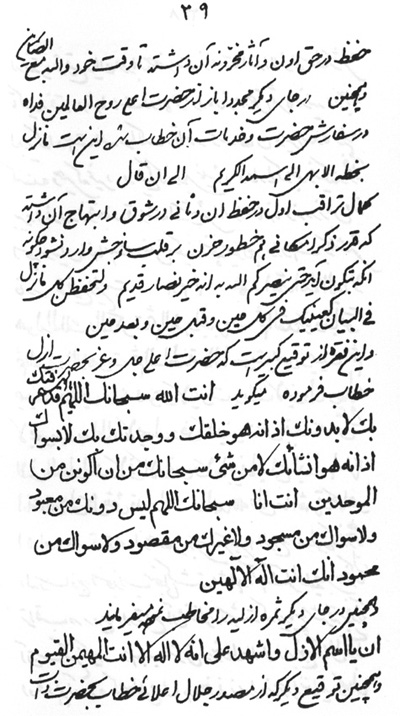 ۲۹
حفظ در حق اون و آثار مخزونه آن داشته تا وقت خود والله مع الصابرین
و همچنین در جای دیگر مجددا باز از حضرت اعلی روح العالمین فداه
در سفارش حضرت و خدمات آن خطاب شده این است نازل
بخطه الابهی الی اسمه الکریم الی ان قال
کمال تراقب اول در حفظ ان و ثانی در شوق و ابتهاج آن داشته
که قدر ذکر امکانی هم خطور حزن بر قلب وارد نشود چگونه
آنکه یکون ینصرکم الله به انه خیر نصار قدیم والتحفظن کل ما نزل
فی البیان کعینیک فی کل حین و قبل حین و بعد حین
و این فقره از توقیع کبیر است که حضرت اعلی جل و عز بحضرت ازل
خطاب فرموده میگوید انت الله سبحانك اللهم
بك لا بدونك اذ انه هو خلقك ووجدتك بك لا بسواك
اذ انه هو انشائك لا من شئ سبحانك من ان اکونن من
الموحدین انت انا سبحانك اللهم لیس دونك من معبود
ولا سواك من مسجود ولا غیرك من مقصود ولا سواك من
محمود انك انت اله الالهین
و همچنین در جای دیگر ثمره ازلیه را مخاطب میفرماید
ان یا اسم الازل واشهد علی انه لا اله الا انت المهیمن القیوم
و همچنین توقیع دیگر که از مصدر جلال اعلائی خطاب بحضرت